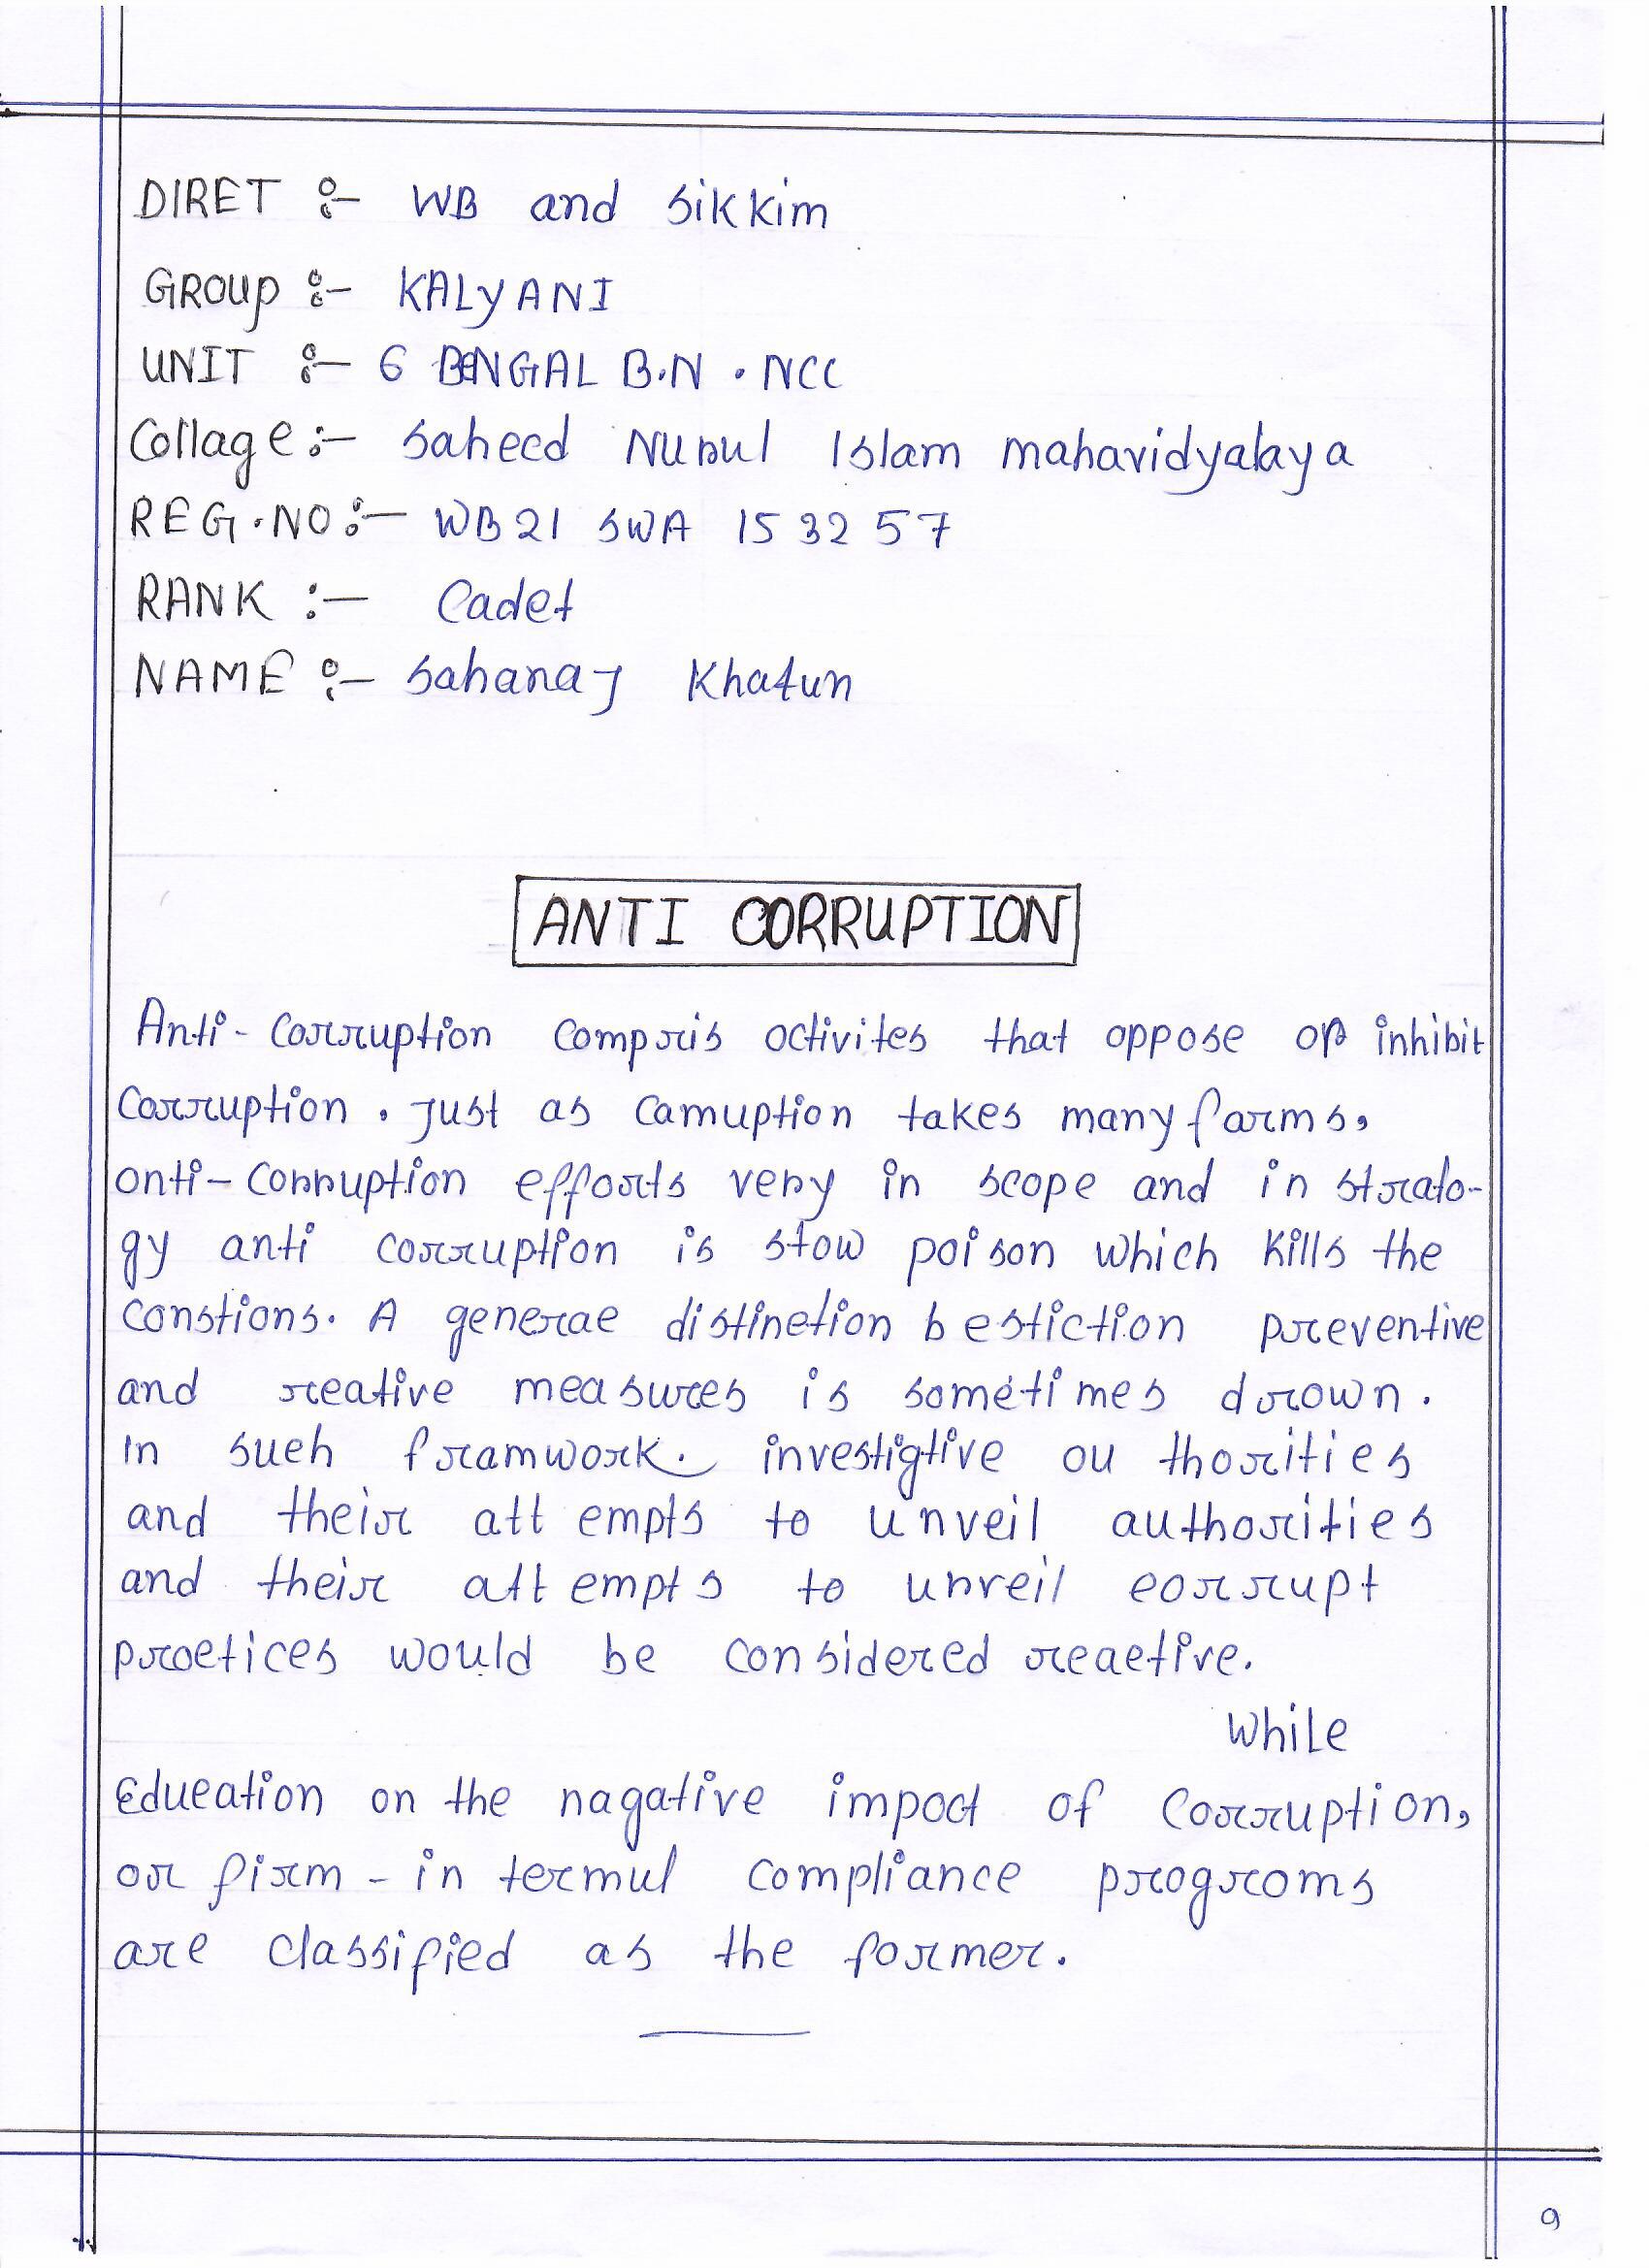 DIRET :- WB and Sikkim
GROUP :- KALYANI
UNIT :- 6 BENGAL B.N . NCC
Collage :- Saheed Nurul Islam mahavidyalaya
REG.NO :- WB21 SWA 153257
RANK :- Cadet
NAME :- Sahanaj Khatun
ANTI CORRUPTION
Anti-Corruption Compris octivites that oppose or inhibit
Corruption. Just as Camuption takes many farms,
onti-Corruption efforts very in scope and in strato-
gy anti corruption is stow poison which kills the
Constions. A generae distinetion bestiction preventive
and reative measures is sometimes drown.
In sueh framwork. investigtive outhorities
and their attempts to unveil authorities
and their attempts to unveil eorrupt
proetices would be considered reaetive.
While
Edueation on the nagative impoct of Corruption,
or firm-in termul compliance progroms
are classified as the former.
9